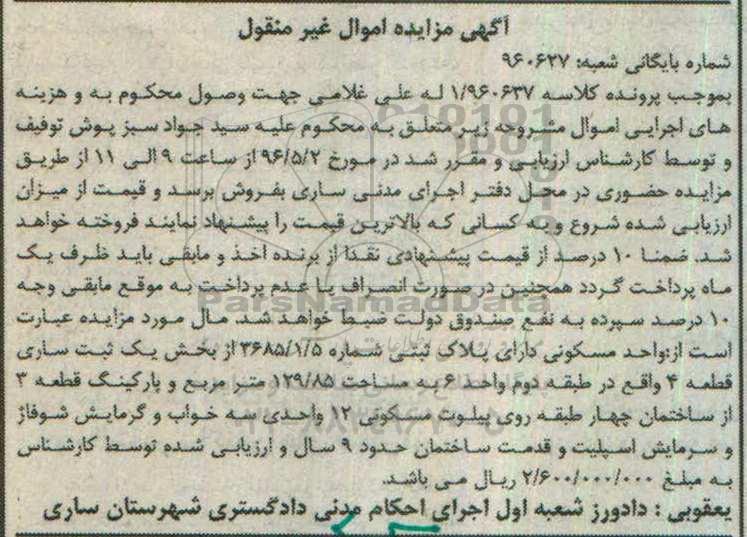 آگهی مزایده اموال غیر منقول
شماره بایگانی شعبه: ۹۶۰۶۲۷
بموجب پرونده کلاسه ۱/۹۶۰۶۳۷ له علی غلامی جهت وصول محکوم به و هزینه
های اجرایی اموال مشروحه زیر متعلق به محکوم علیه سید جواد سبز پوش توقیف
و توسط کارشناس ارزیابی و مقرر شد در مورخ ۹۶/۵/۲ از ساعت ۹ الی ۱۱ از طریق
مزایده حضوری در محل دفتر اجرای مدنی ساری بفروش برسد و قیمت از میزان
ارزیابی شده شروع و به کسانی که بالاترین قیمت را پیشنهاد نمایند فروخته خواهد
شد. ضمنا ۱۰ درصد از قیمت پیشنهادی نقدا از برنده اخذ و مابقی باید ظرف یک
ماه پرداخت گردد همچنین در صورت انصراف یا عدم پرداخت به موقع مابقی وجه
ParsNamadData
۱۰ درصد سپرده به نفع صندوق دولت ضبط خواهد شد. مال مورد مزایده عبارت
است از:واحد مسکونی دارای پلاک ثبتی شماره ۳۶۸۵/۱/۵ از بخش یک ثبت ساری
قطعه ۴ واقع در طبقه دوم واحد ۶ به مساحت ۱۲۹/۸۵ متر مربع و پارکینگ قطعه ۳
از ساختمان چهار طبقه روی پیلوت مسکونی ۱۲ واحدی سه خواب و گرمایش شوفاژ
و سرمایش اسپلیت و قدمت ساختمان حدود ۹ سال و ارزیابی شده توسط کارشناس
به مبلغ ۲/۶۰۰/۰۰۰/۰۰۰ ریال می باشد.
یعقوبی : دادورز شعبه اول اجرای احکام مدنی دادگستری شهرستان ساری